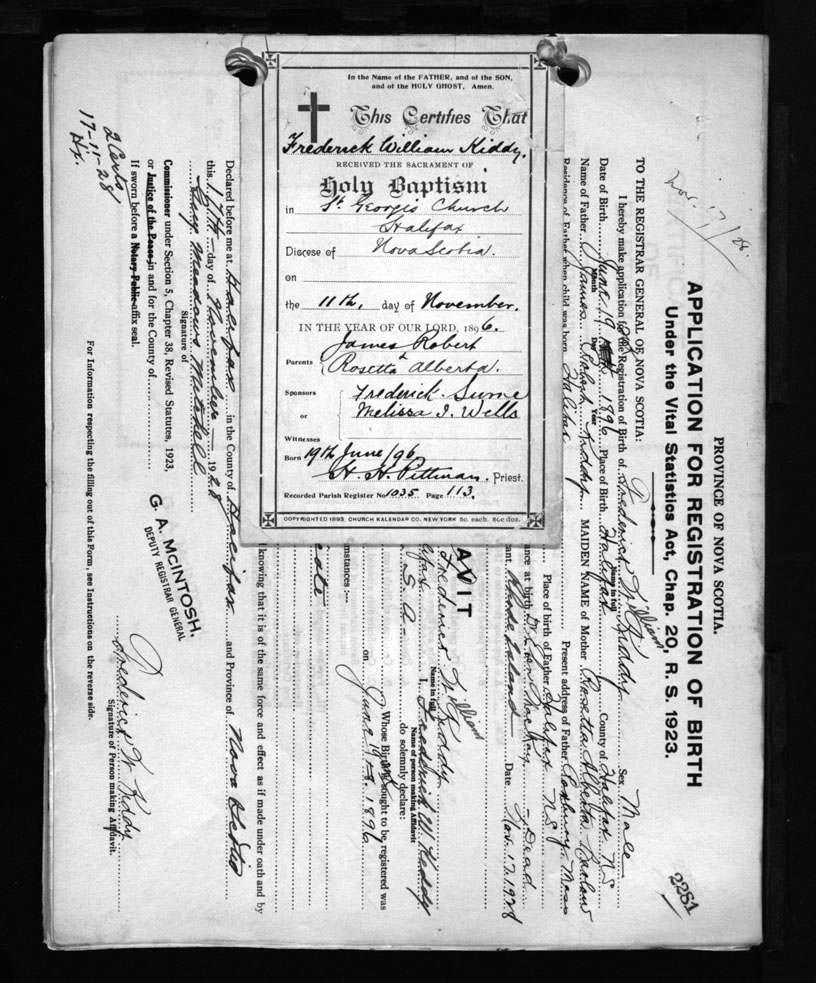 In the Name of the FATHER, and of the SON,
and of the HOLY GHOST, Amen.
This Certifies That
Frederick William Kiddy.
RECEIVED THE SACRAMENT OF
Holy Baptism
in St. Georges Church
Halifax
Diocese of Nova Scotia.
on
the 11th, day of November.
IN THE YEAR OF OUR LORD, 1896.
James Robert
Parents &
Rosetta Alberta.
Sponsors Frederick
or Melissa J. Wells
Witnesses
Born 19th June/96
H. H. Pittman. Priest.
Recorded Parish Register No 1035 Page 113.
COPYRIGHTED 1893 CHURCH KALENDAR CO. NEW YORK 5c. each. 50c doz.
Nov. 17/28.
2281
PROVINCE OF NOVA SCOTIA.
APPLICATION FOR REGISTRATION OF BIRTH
Under the Vital Statistics Act, Chap. 20, R. S. 1923.
TO THE REGISTRAR GENERAL OF NOVA SCOTIA:
I hereby make application for the Registration of Birth of Frederick William Kiddy Sex Male
Name in full
Date of Birth June 19 1896 Place of Birth Halifax County of Halifax N S
Month Day Year
Name of Father James Robert Kiddy MAIDEN NAME of Mother Rosetta Alberta
Residence of Father when child was born Halifax Present address of Father Roxbury Mass
Place of birth of Father Halifax N.S.
ance at birth Dr. Dead
ant. Rhode Island Date Nov. 17. 1928
AVIT
Frederick William Kiddy I, Frederick W. Kiddy
Name in full Name of person making Affidavit
S. A. do solemnly declare:
Whose Birth is sought to be registered was
on June 1896
mstances:—
cate
knowing that it is of the same force and effect as if made under oath and by
Declared before me at Halifax in the County of Halifax and Province of Nova Scotia
this 17th day of November 1928
Guy Meadows Mitchell
Signature of
Frederick W Kiddy
Signature of Person making Affidavit.
G. A. McINTOSH.
DEPUTY REGISTRAR GENERAL
Commissioner under Section 5, Chapter 38, Revised Statutes, 1923,
or Justice of the Peace in and for the County of
If sworn before a Notary Public affix seal.
For Information respecting the filling out of this Form, see Instructions on the reverse side.
2 Certs
17-11-28
Hx.